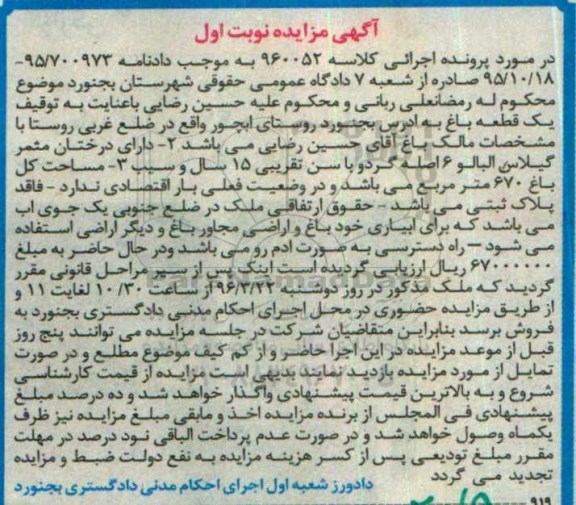 آگهی مزایده نوبت اول
در مورد پرونده اجرائی کلاسه ۹۶۰۰۵۲ به موجب دادنامه ۹۵/۷۰۰۹۷۳-
۹۵/۱۰/۱۸ صادره از شعبه ۷ دادگاه عمومی حقوقی شهرستان بجنورد موضوع
محکوم له رمضانعلی ربانی و محکوم علیه حسین رضایی باعنایت به توقیف
یک قطعه باغ به ادرس بجنورد روستای ابجور واقع در ضلع غربی روستا با
مشخصات مالک باغ آقای حسین رضایی می باشد ۲- دارای درختان مثمر
گیلاس البالو ۶ اصله گردو با سن تقریبی ۱۵ سال و سیب ۳- مساحت کل
باغ ۶۷۰ متر مربع می باشد و در وضعیت فعلی بار اقتصادی ندارد - فاقد
پلاک ثبتی می باشد - حقوق ارتفاقی ملک در ضلع جنوبی یک جوی اب
می باشد که برای ابیاری خود باغ و اراضی مجاور باغ و دیگر اراضی استفاده
می شود – راه دسترسی به صورت ادم رو می باشد ودر حال حاضر به مبلغ
۶۷۰۰۰۰۰۰ ریال ارزیابی گردیده است اینک پس از سیر مراحل قانونی مقرر
گردید که ملک مذکور در روز دوشنبه ۹۶/۳/۲۲ از ساعت ۱۰/۳۰ لغایت ۱۱ و
از طریق مزایده حضوری در محل اجرای احکام مدنی دادگستری بجنورد به
فروش برسد بنابراین متقاضیان شرکت در جلسه مزایده می توانند پنج روز
قبل از موعد مزاینده در این اجرا حاضر و از کم کیف موضوع مطلع و در صورت
تمایل از مورد مزایده بازدید نمایند بدیهی است مزایده از قیمت کارشناسی
شروع و به بالاترین قیمت پیشنهادی واگذار خواهد شد و ده درصد مبلغ
پیشنهادی فی المجلس از برنده مزایده اخذ و مابقی مبلغ مزایده نیز ظرف
یکماه وصول خواهد شد و در صورت عدم پرداخت الباقی نود درصد در مهلت
مقرر مبلغ تودیعی پس از کسر هزینه مزایده به نفع دولت ضبط و مزایده
تجدید می گردد
دادورز شعبه اول اجرای احکام مدنی دادگستری بجنورد
۹۱۹